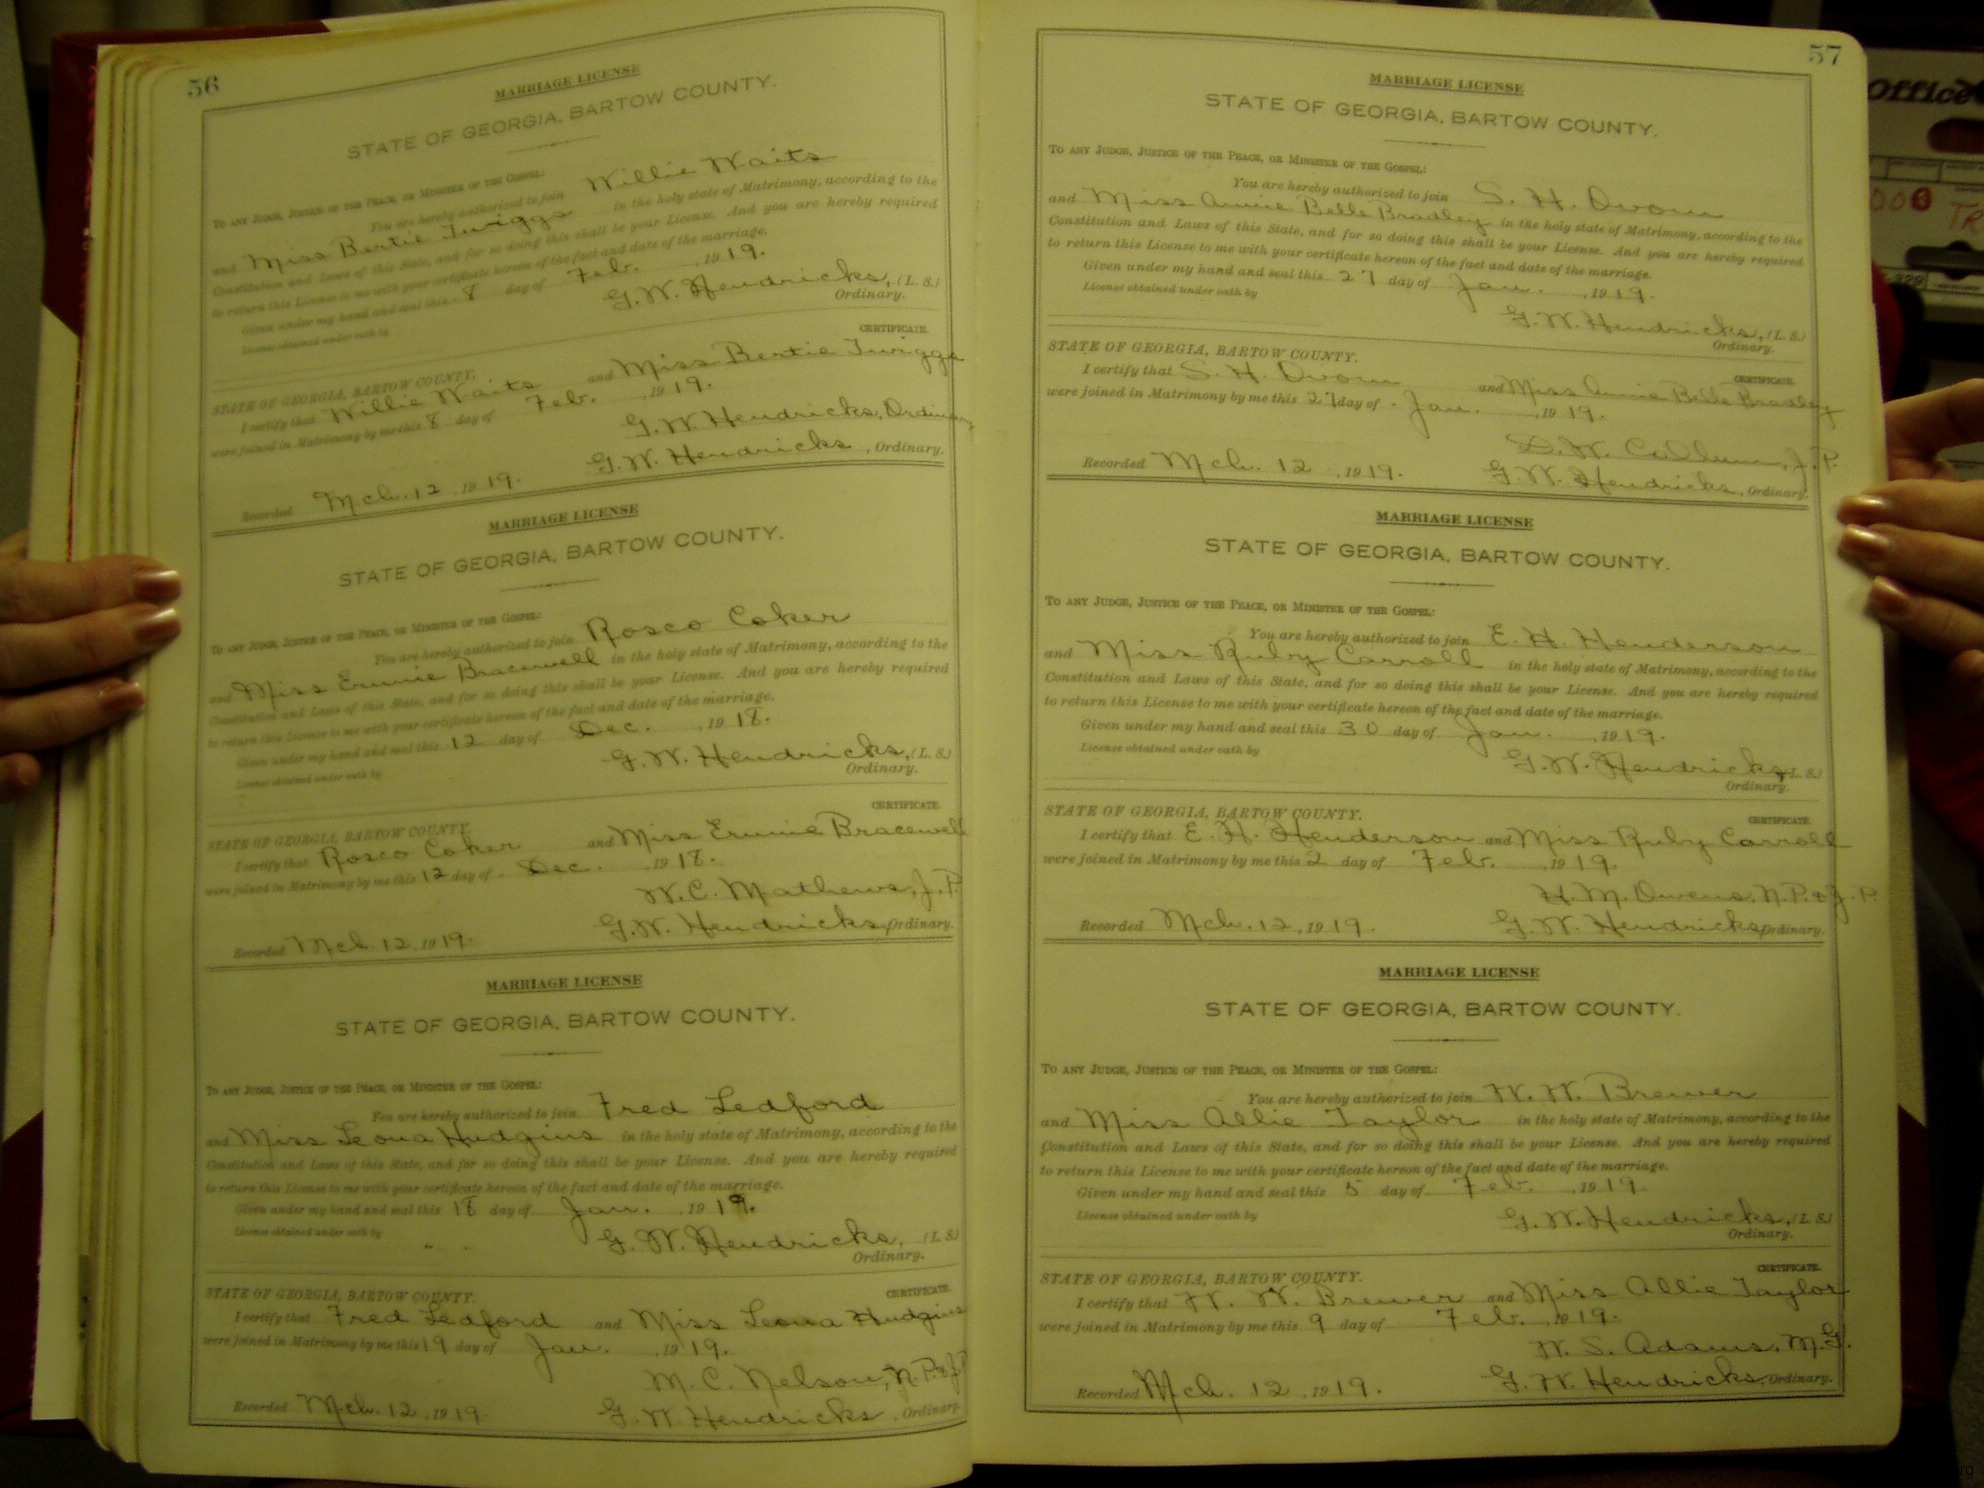 56
MARRIAGE LICENSE
STATE OF GEORGIA, BARTOW COUNTY.
TO ANY JUDGE, JUSTICE OF THE PEACE, OR MINISTER OF THE GOSPEL:
You are hereby authorized to join Willie Waits
and Miss Bertie Twiggs in the holy state of Matrimony, according to the
Constitution and Laws of this State, and for so doing this shall be your License. And you are hereby required
to return this License to me with your certificate hereon of the fact and date of the marriage.
Given under my hand and seal this 8 day of Feb. , 1919.
License obtained under oath by
G.W. Hendricks, (L. S.)
Ordinary.
CERTIFICATE.
STATE OF GEORGIA, BARTOW COUNTY.
I certify that Willie Waits and Miss Bertie Twiggs
were joined in Matrimony by me this 8 day of Feb. , 1919.
G.W. Hendricks, Ordinary,
Recorded Mch. 12 , 1919. G.W. Hendricks , Ordinary.
MARRIAGE LICENSE
STATE OF GEORGIA, BARTOW COUNTY.
TO ANY JUDGE, JUSTICE OF THE PEACE, OR MINISTER OF THE GOSPEL:
You are hereby authorized to join Rosco Coker
and Miss Ermie Bracewell in the holy state of Matrimony, according to the
Constitution and Laws of this State, and for so doing this shall be your License. And you are hereby required
to return this License to me with your certificate hereon of the fact and date of the marriage.
Given under my hand and seal this 12 day of Dec. , 1918.
License obtained under oath by
G.W. Hendricks, (L. S.)
Ordinary.
CERTIFICATE.
STATE OF GEORGIA, BARTOW COUNTY.
I certify that Rosco Coker and Miss Ermie Bracewell
were joined in Matrimony by me this 12 day of Dec. , 1918.
W.C. Mathews, J.P.
Recorded Mch. 12, 1919. G.W. Hendricks, Ordinary.
MARRIAGE LICENSE
STATE OF GEORGIA, BARTOW COUNTY.
TO ANY JUDGE, JUSTICE OF THE PEACE, OR MINISTER OF THE GOSPEL:
You are hereby authorized to join Fred Ledford
and Miss Leona Hudgins in the holy state of Matrimony, according to the
Constitution and Laws of this State, and for so doing this shall be your License. And you are hereby required
to return this License to me with your certificate hereon of the fact and date of the marriage.
Given under my hand and seal this 18 day of Jan. , 1919.
License obtained under oath by
G. W. Hendricks, (L. S.)
Ordinary.
CERTIFICATE.
STATE OF GEORGIA, BARTOW COUNTY.
I certify that Fred Ledford and Miss Leona Hudgins
were joined in Matrimony by me this 19 day of Jan. , 1919.
M. C. Nelson, N.P.&J.P.
Recorded Mch. 12 , 1919. G. W. Hendricks , Ordinary.
57
MARRIAGE LICENSE
STATE OF GEORGIA, BARTOW COUNTY.
TO ANY JUDGE, JUSTICE OF THE PEACE, OR MINISTER OF THE GOSPEL:
You are hereby authorized to join S. H.
and Miss Annie Belle Bradley in the holy state of Matrimony, according to the
Constitution and Laws of this State, and for so doing this shall be your License. And you are hereby required
to return this License to me with your certificate hereon of the fact and date of the marriage.
Given under my hand and seal this 27 day of Jan. , 1919.
License obtained under oath by
G.W. Hendricks, (L. S.)
Ordinary.
STATE OF GEORGIA, BARTOW COUNTY.
CERTIFICATE.
I certify that S. H. and Miss Annie Belle Bradley
were joined in Matrimony by me this 27 day of Jan. , 1919.
D. W. J.P.
Recorded Mch. 12 , 1919. G.W. Hendricks, Ordinary.
MARRIAGE LICENSE
STATE OF GEORGIA, BARTOW COUNTY.
TO ANY JUDGE, JUSTICE OF THE PEACE, OR MINISTER OF THE GOSPEL:
You are hereby authorized to join E. H. Henderson
and Miss Ruby Carroll in the holy state of Matrimony, according to the
Constitution and Laws of this State, and for so doing this shall be your License. And you are hereby required
to return this License to me with your certificate hereon of the fact and date of the marriage.
Given under my hand and seal this 30 day of Jan. , 1919.
License obtained under oath by
G.W. Hendricks, (L. S.)
Ordinary.
STATE OF GEORGIA, BARTOW COUNTY.
CERTIFICATE.
I certify that E. H. Henderson and Miss Ruby Carroll
were joined in Matrimony by me this 2 day of Feb. , 1919.
H. M. Owens, N.P.&J.P.
Recorded Mch. 12 , 1919. G. W. Hendricks, Ordinary.
MARRIAGE LICENSE
STATE OF GEORGIA, BARTOW COUNTY.
TO ANY JUDGE, JUSTICE OF THE PEACE, OR MINISTER OF THE GOSPEL:
You are hereby authorized to join W. W. Brewer
and Miss Allie Taylor in the holy state of Matrimony, according to the
Constitution and Laws of this State, and for so doing this shall be your License. And you are hereby required
to return this License to me with your certificate hereon of the fact and date of the marriage.
Given under my hand and seal this 5 day of Feb. , 1919
License obtained under oath by
G.W. Hendricks, (L. S.)
Ordinary.
CERTIFICATE.
STATE OF GEORGIA, BARTOW COUNTY.
I certify that W. W. Brewer and Miss Allie Taylor
were joined in Matrimony by me this 9 day of Feb. , 1919.
W. S. Adams, M.G.
Recorded Mch. 12 , 1919. G. W. Hendricks, Ordinary.
Office
TR